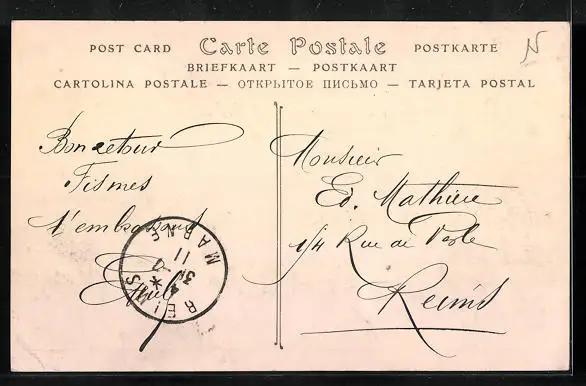 POST CARD Carte Postale POSTKARTE
BRIEFKAART — POSTKAART
CARTOLINA POSTALE — ОТКРЫТОЕ ПИСЬМО — TARJETA POSTAL
N
Bon retour
Fismes
t'embrassant
Monsieur
Ed. Mathieu
14 Rue de Vesle
Reims
REIMS
MARNE